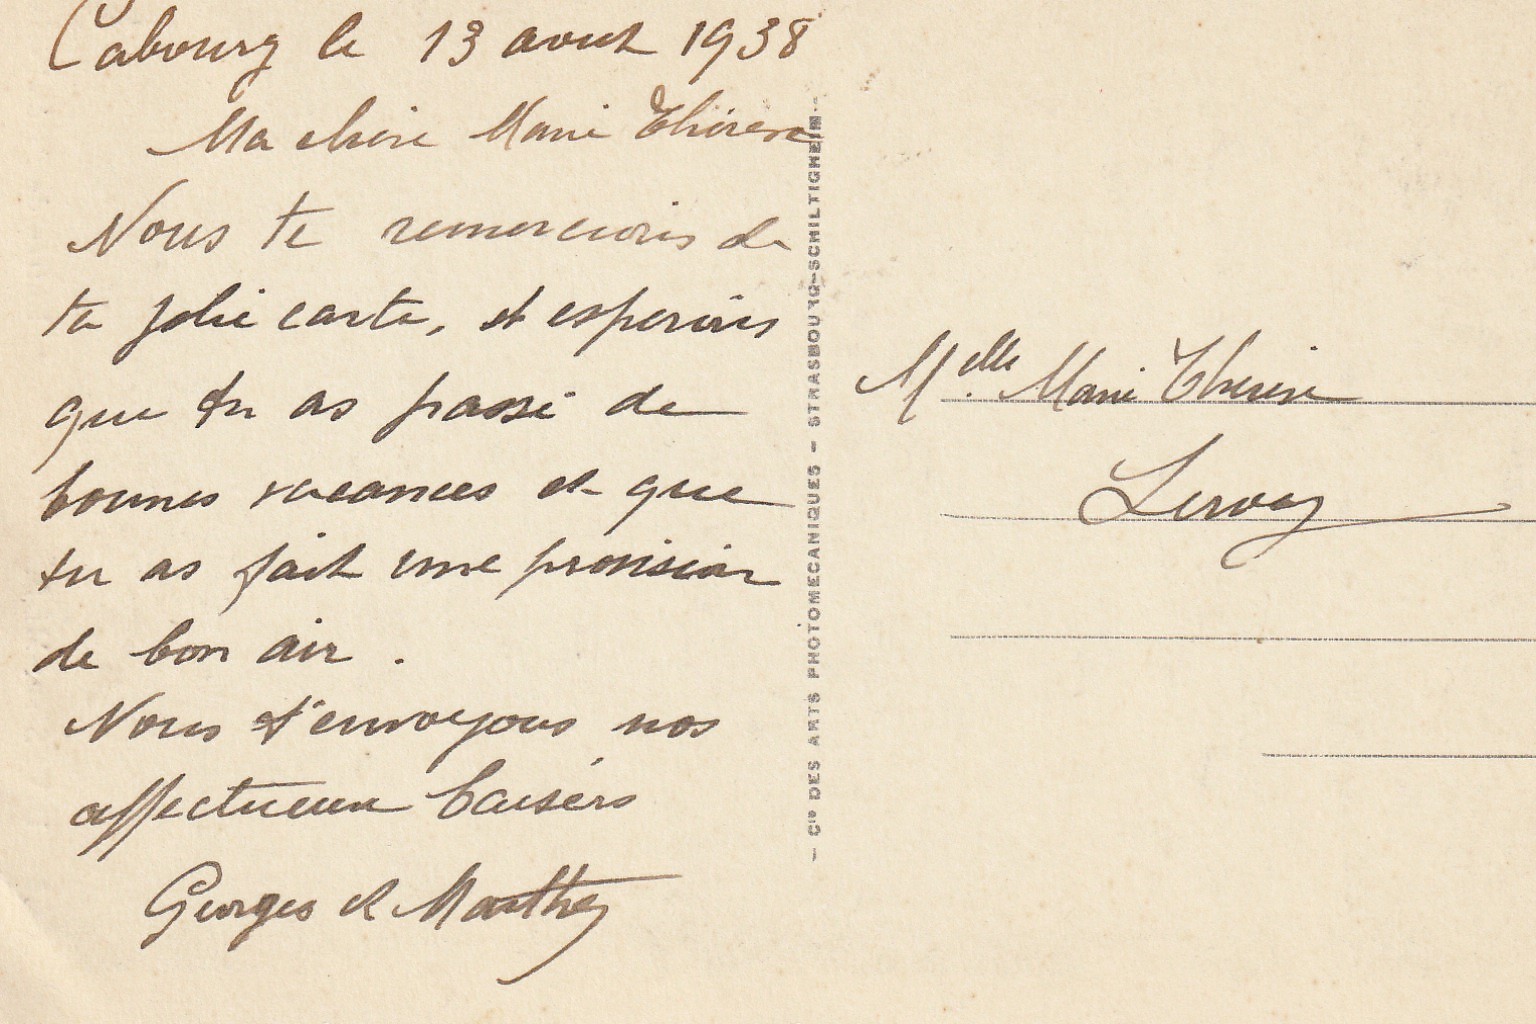 Cabourg le 13 aout 1938
Ma chère Marie Thérèse
Nous te remercions de
ta jolie carte, et esperons
que tu as passé de
bonnes vacances et que
tu as fait une provision
de bon air.
Nous t'envoyons nos
affectueux baisers
Georges et Marthe
— Cie DES ARTS PHOTOMECANIQUES — STRASBOURG-SCHILTIGHEIM —
Melle. Marie Therese
Leroy